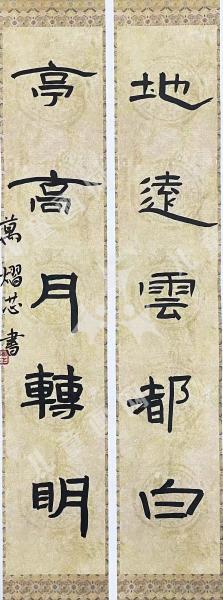 地遠雲都白
亭高月轉明
萬熠芯書